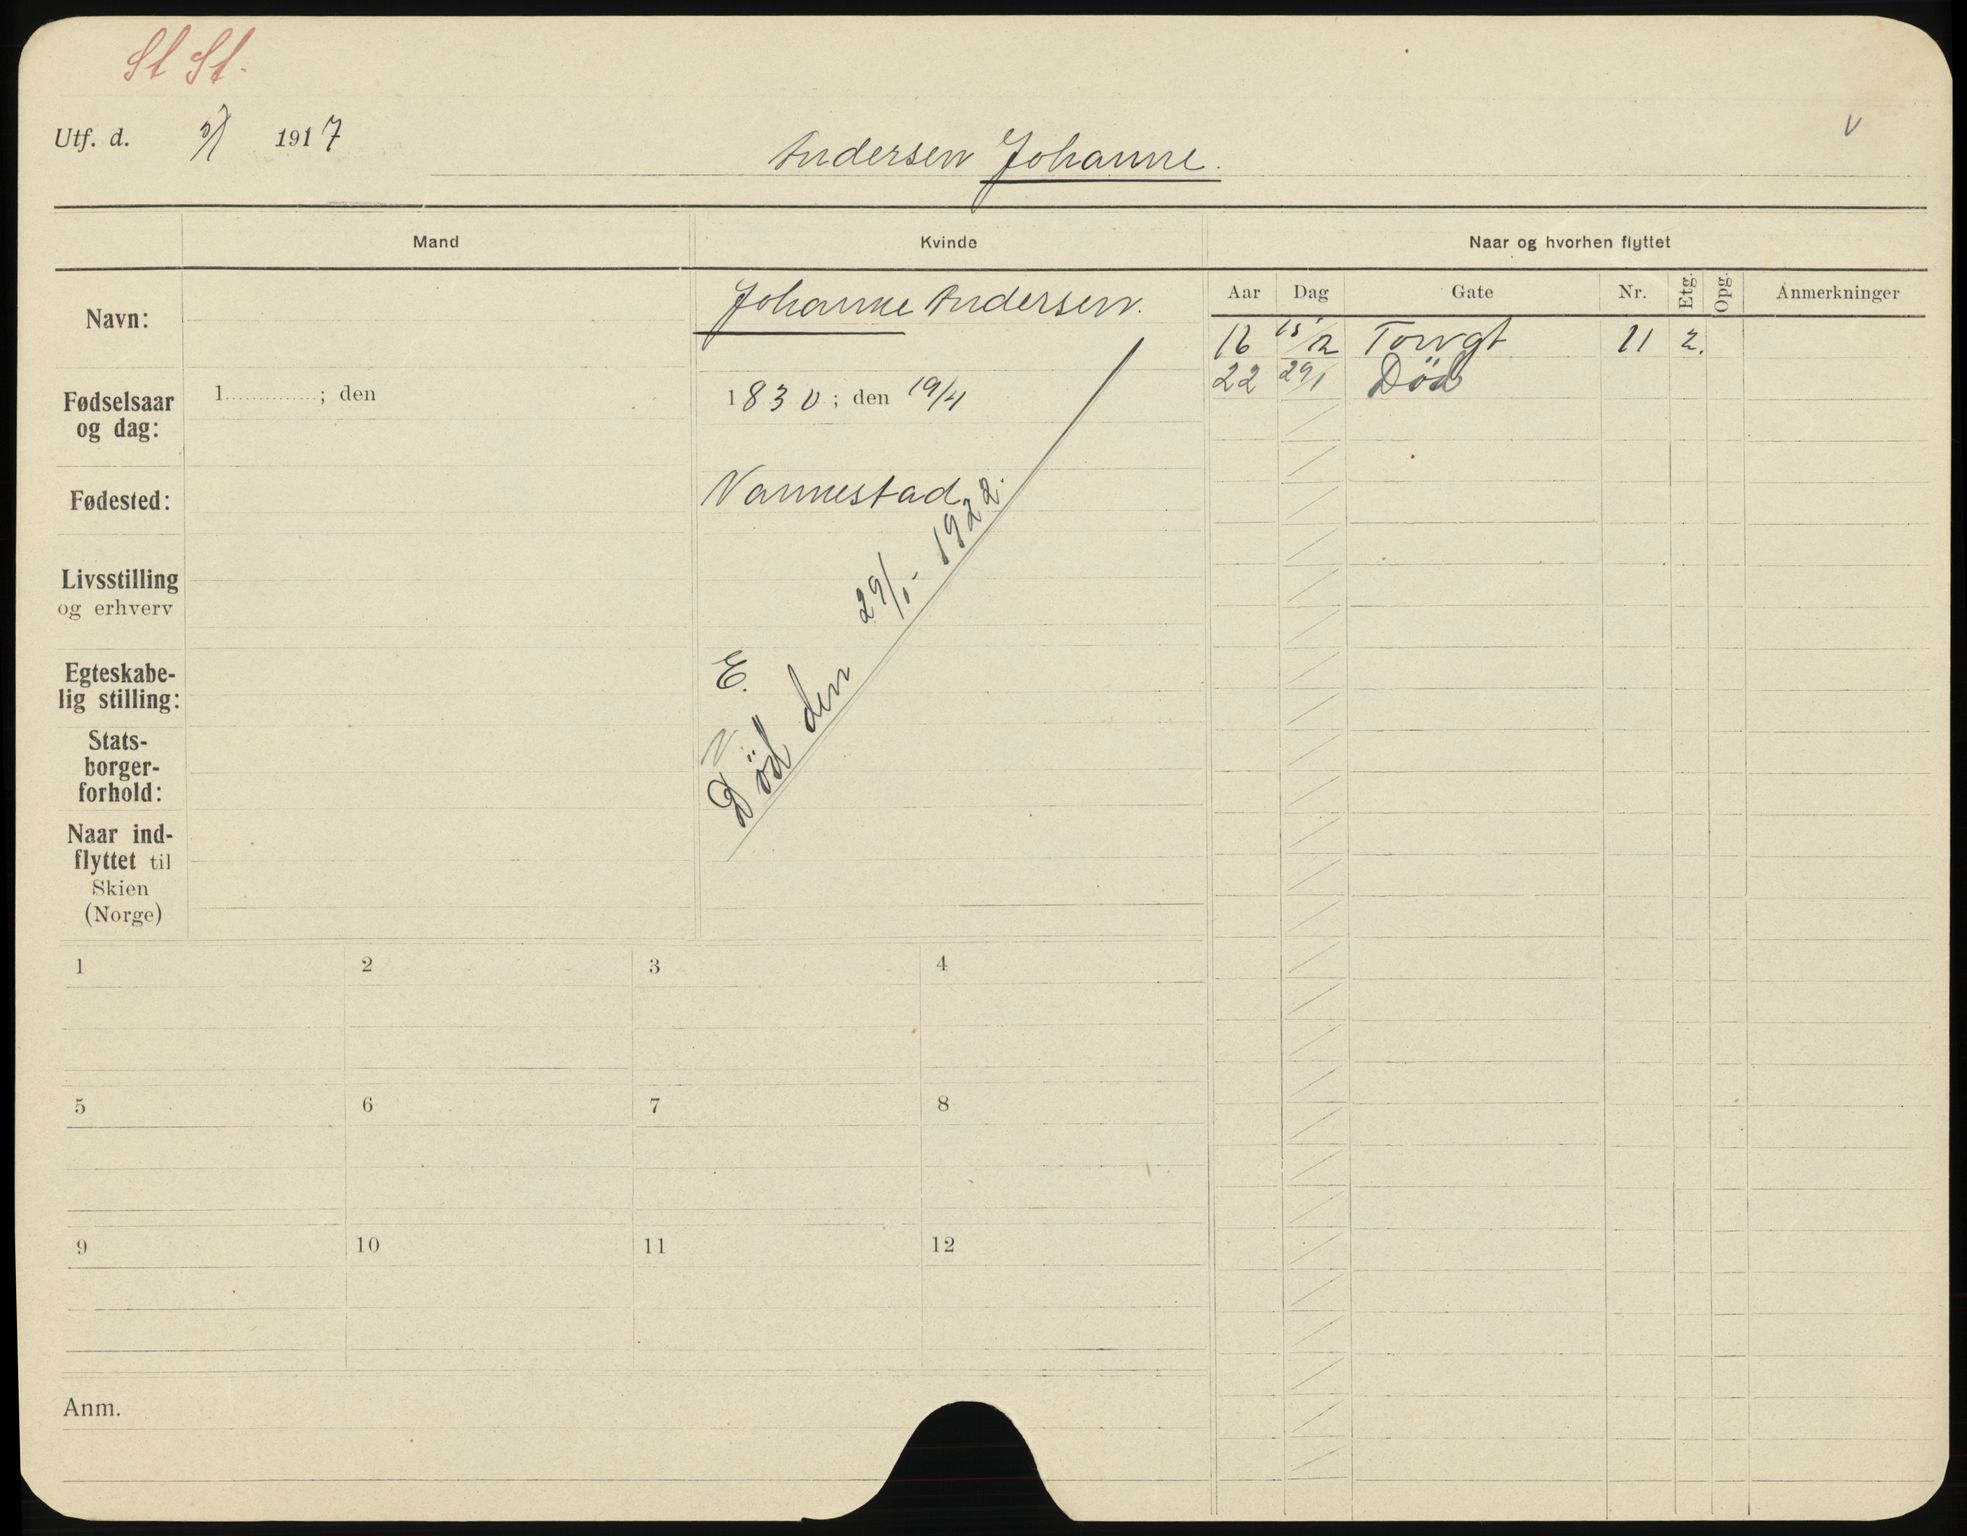 St St.
Utf. d. 5/1 1917
Andersen Johanne.
v
Mand Kvinde Naar og hvorhen flyttet
Aar Dag Gate Nr. Etg. Opg. Anmerkninger
Navn: Johanne Andersen.
16 15/12 Torvgt 11 2.
22 29/1 Död
Fødselsaar og dag: 1 ; den 1830 ; den 19/4
Fødested: Vannestad
Livsstilling
og erhverv
Egteskabe-
lig stilling: E.
Stats-
borger-
forhold: N
Död den 29/1 - 1922.
Naar ind-
flyttet til
Skien
(Norge)
1 2 3 4
5 6 7 8
9 10 11 12
Anm.